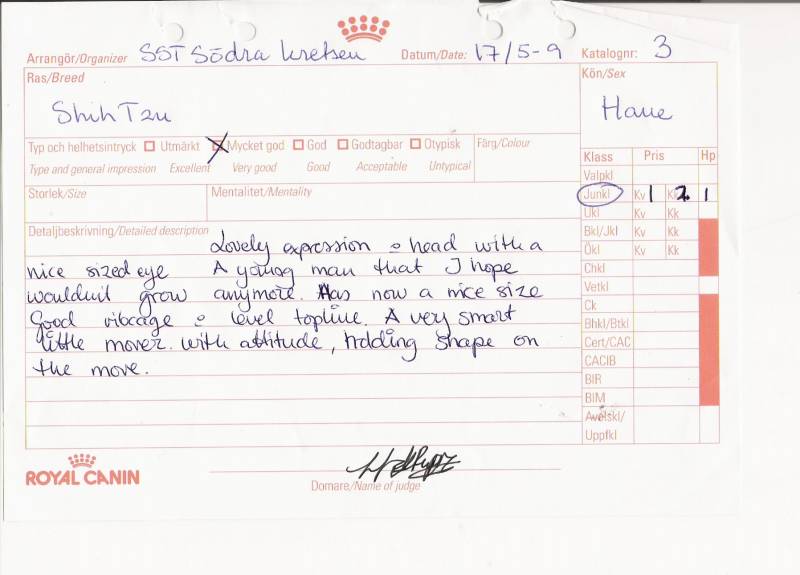 Arrangör/Organizer SST Södra kretsen Datum/Date: 17/5-9 Katalognr: 3
Ras/Breed Kön/Sex
Shih Tzu Hane
Typ och helhetsintryck Utmärkt Mycket god God Godtagbar Otypisk Färg/Colour
Type and general impression Excellent Very good Good Acceptable Untypical
Klass Pris Hp
Valpkl
Storlek/Size Mentalitet/Mentality
Junkl Kv 1 Kk 2 1
Ukl Kv Kk
Bkl/Jkl Kv Kk
Ökl Kv Kk
Chkl
Vetkl
Ck
Bhkl/Btkl
Cert/CAC
CACIB
BIR
BIM
Avelskl/
Uppfkl
Detaljbeskrivning/Detailed description Lovely expression & head with a
nice sized eye A young man that I hope
wouldn't grow anymore. Has now a nice size
Good ribcage & level topline. A very smart
little mover with attitude, holding shape on
the move.
ROYAL CANIN
Domare/Name of judge